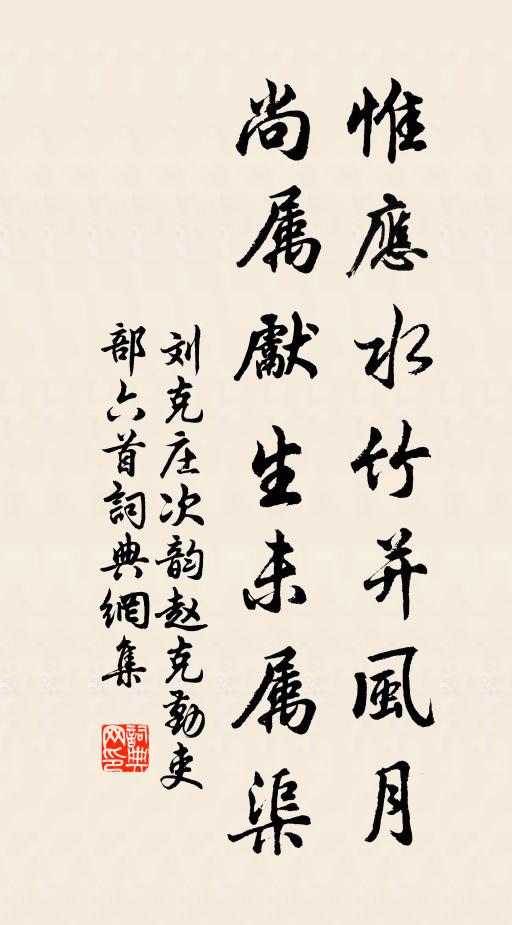 惟應水竹并風月
尚属獻生未属渠
刘克庄次韵赵克勤吏
部六首詞典網集
詞典网印